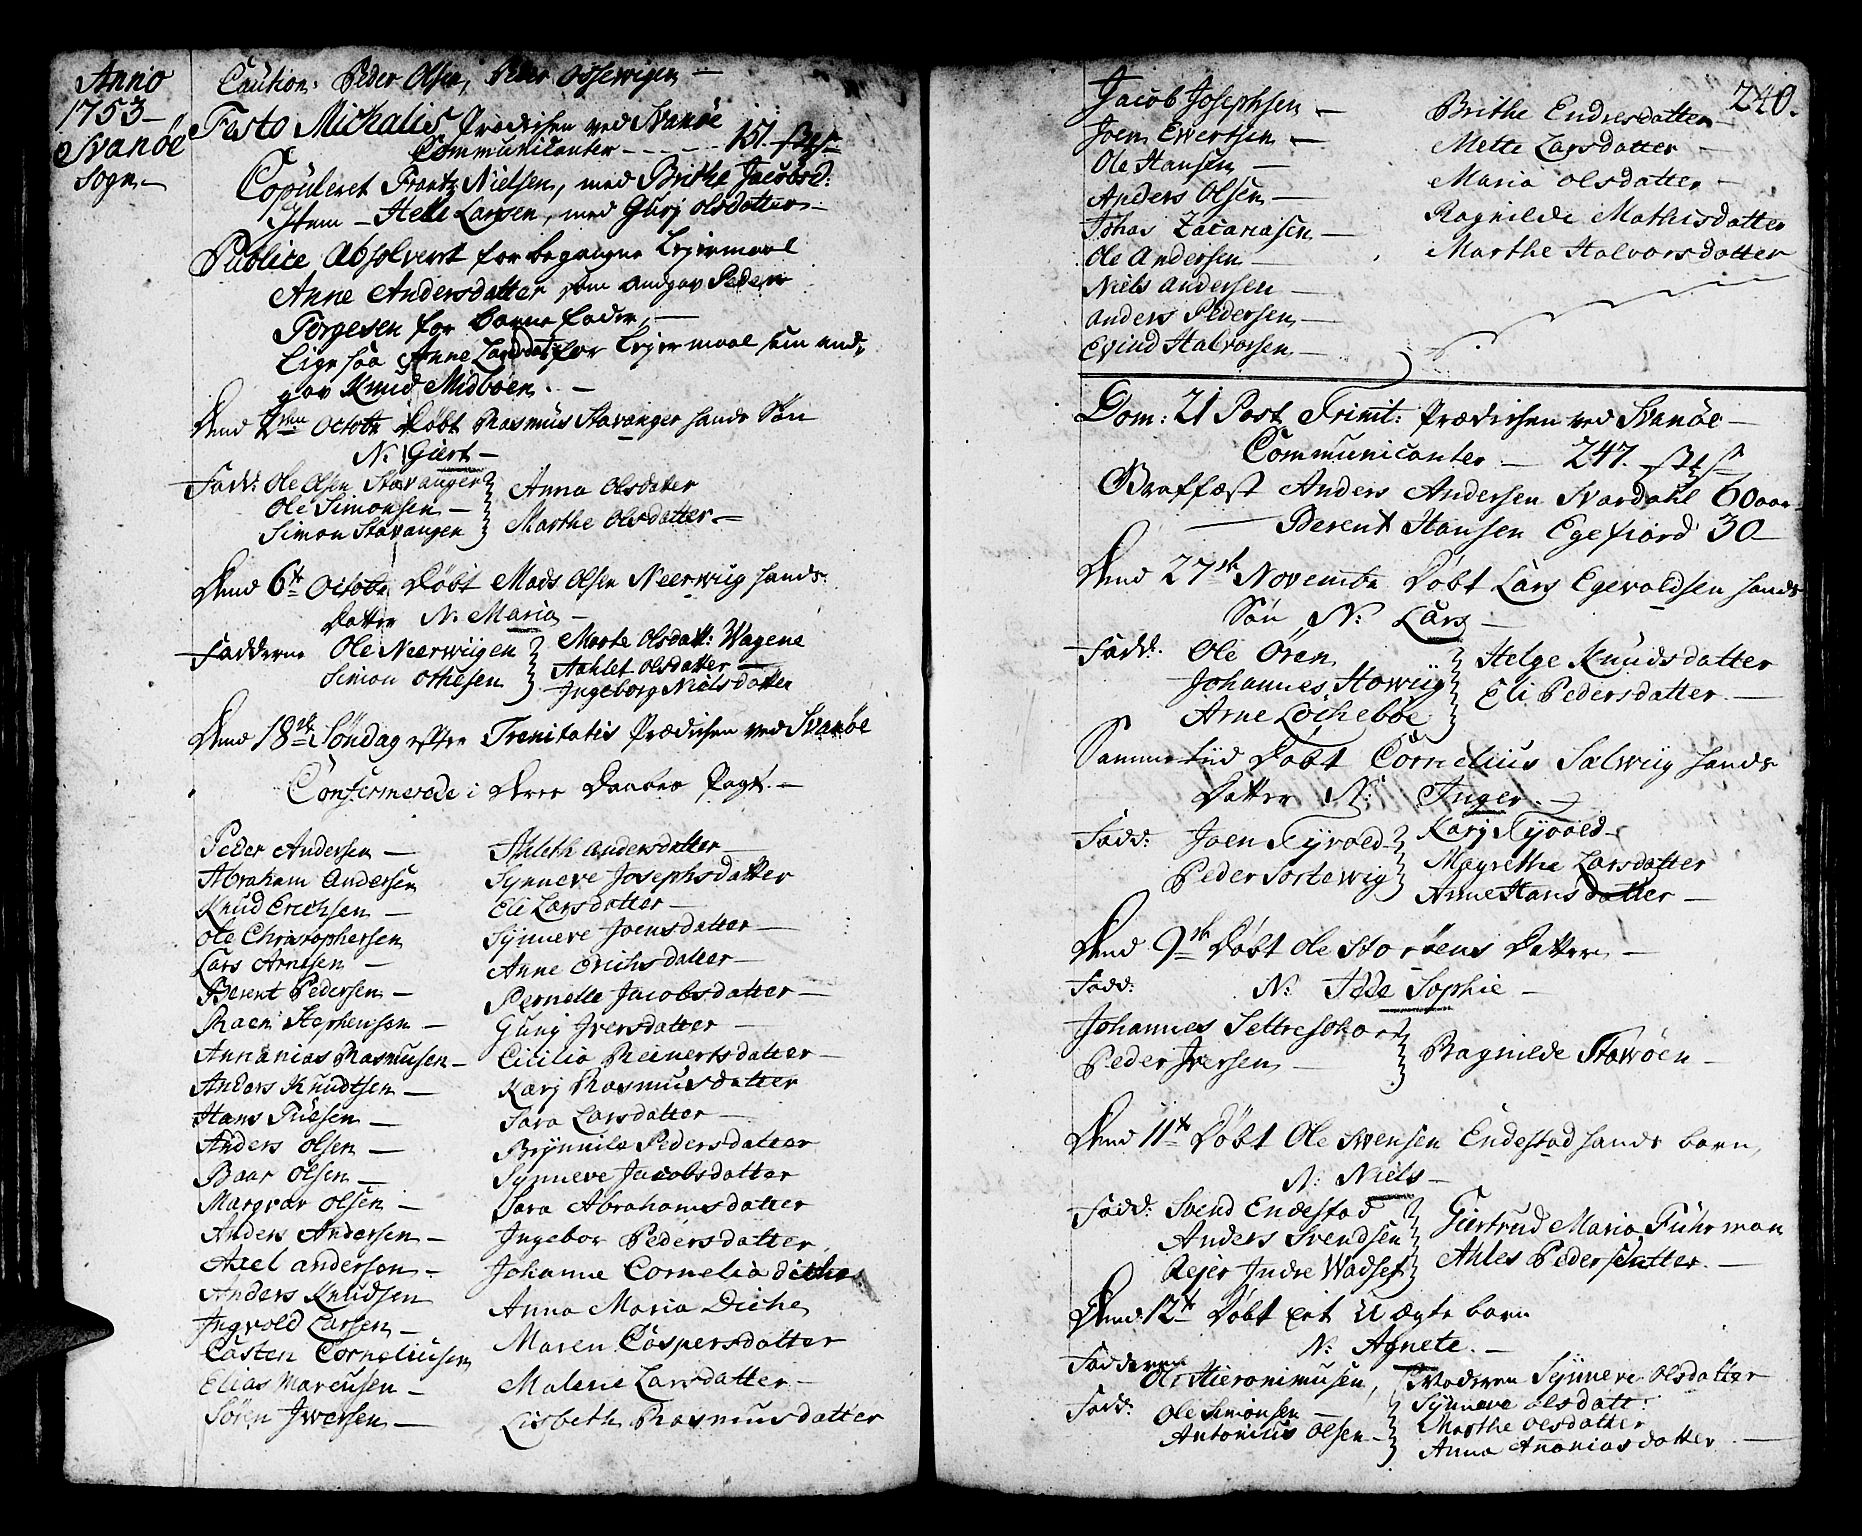 Anno
1753
Svanöe
Sogn
Caution: Peder Olsen, Peder
Festo Michalis Prædichen ved Svanöe
Communicanter - - - 151. st
Copuleret Frantz Nielsen, med Brithe Jacobsd:
Item - Helle Larsen, med Gurj Olsdatter
Publice Absolveret for begangne Leiermaal
Anne Andersdatter som udgav Peder
Torgesen for barne fader, -
Ligesaa Anne Larsdatt: for Leiermaal som ud,
gav Knud Midböen. -
Dend 7de Octobr Döbt Rasmus Stavanger hands Sön
N: Giert -
Fadd: Ole Olsen Stavanger
Ole Simonsen -
Simon Stavangen
Anna Olsdatter
Marthe Olsdatter -
Dend 6te Octobr Döbt Mads Olsen Neerwiig hands
Datter N: Maria -
Fadderne Ole Neerwiigen
Simon Othesen
Marte Olsdatt: Wagene
Aahlet Olsdatter -
Ingeborg Nielsdatter
Dend 18de Söndag efter Trenitatis Prædichen ved Svanöe
Confermerede i deres Daabes Pagt. -
Peder Andersen -
Abraham Andersen
Knud Erichsen -
Ole Christophersen
Lars Arnesen -
Berent Pedersen -
Raen Stephensen -
Annanias Rasmusen -
Anders Knudtsen -
Hans Tüesen -
Anders Olsen -
Baar Olsen -
Margvar Olsen -
Anders Andersen -
Axel Andersen -
Anders Knudsen
Ingvold Larsen -
Casten Corneliusen
Elias Marcusen -
Sören Iwersen -
Ahleth Andersdatter
Synneve Josephsdatter
Eli Larsdatter -
Synneve Joensdatter -
Anne Erichsdatter -
Pernelle Jacobsdatter -
Gunj Iversdatter -
Cicilia Reinertsdatter -
Karj Rasmusdatter
Sara Larsdatter -
Brynnila Pedersdatter
Synneve Jacobsdatter
Sara Abrahamsdatter
Ingebor Pedersdatter
Johanne Cornelia Diche
Anna Maria Diche
Maren Caspersdatter
Malene Larsdatter -
Lisbeth Rasmusdatter
240.
Jacob Josephsen -
Joen Ewertsen -
Ole Hansen -
Anders Olsen -
Johas Zacariasen -
Ole Andersen -
Niels Andersen -
Anders Pedersen -
Evind Halvorsen -
Brithe Endresdatter
Mette Larsdatter -
Maria Olsdatter -
Ragnilde Mathisdatter
Marthe Halvorsdatter
Dom: 21 Post Trinit: Prædichen ved Svanöe -
Communicanter - 247. st
Graffæst Anders Andersen Svardahl 60 aar
- Berent Hansen Egefiord 30 -
Dend 27de Novembr Döbt Lars Egevoldsen hands
Sön N: Lars -
Fadd: Ole Ören
Johannes Howiig
Arne Löcheböe
Helge Knudsdatter
Eli Pedersdatter -
Samme tiid Döbt Cornelius Salwiig hands
Datter N: Inger. -
Fadd: Joen Tyvold -
Peder Sortewiig
Karj Tyvold -
Magrethe Larsdatter
Anne Hansdatter -
Dend 9de Döbt Ole Storöens Datter -
Fadd: N: Idde Sophie -
Johannes Settreschor
Peder Iversen -
Ragnilde Storöen -
Dend 11te Döbt Ole Svensen Endestad hands barn,
N: Niels -
Fadd: Svend Endestad
Anders Svendsen
Rejer Indre Wadset
Giertrud Maria Fuhrman
Ahles Pedersdatter -
Dend 12te Döbt eet Uægte barn
N: Agnete. -
Fadderen
Ole Hieronimusen,
Moderen Synneve Olsdatter
Fadd: Ole Simonsen -
Antonius Olsen -
Synneve Olsdatt:
Marthe Olsdatter
Anna Ananiasdatter -